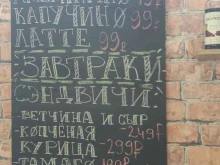 КАПУЧИНО 99
ЛАТТЕ 99р
ЗАВТРАКИ
СЭНДВИЧИ
ВЕТЧИНА И СЫР
-КОПЧЁНАЯ -249р
КУРИЦА -299р